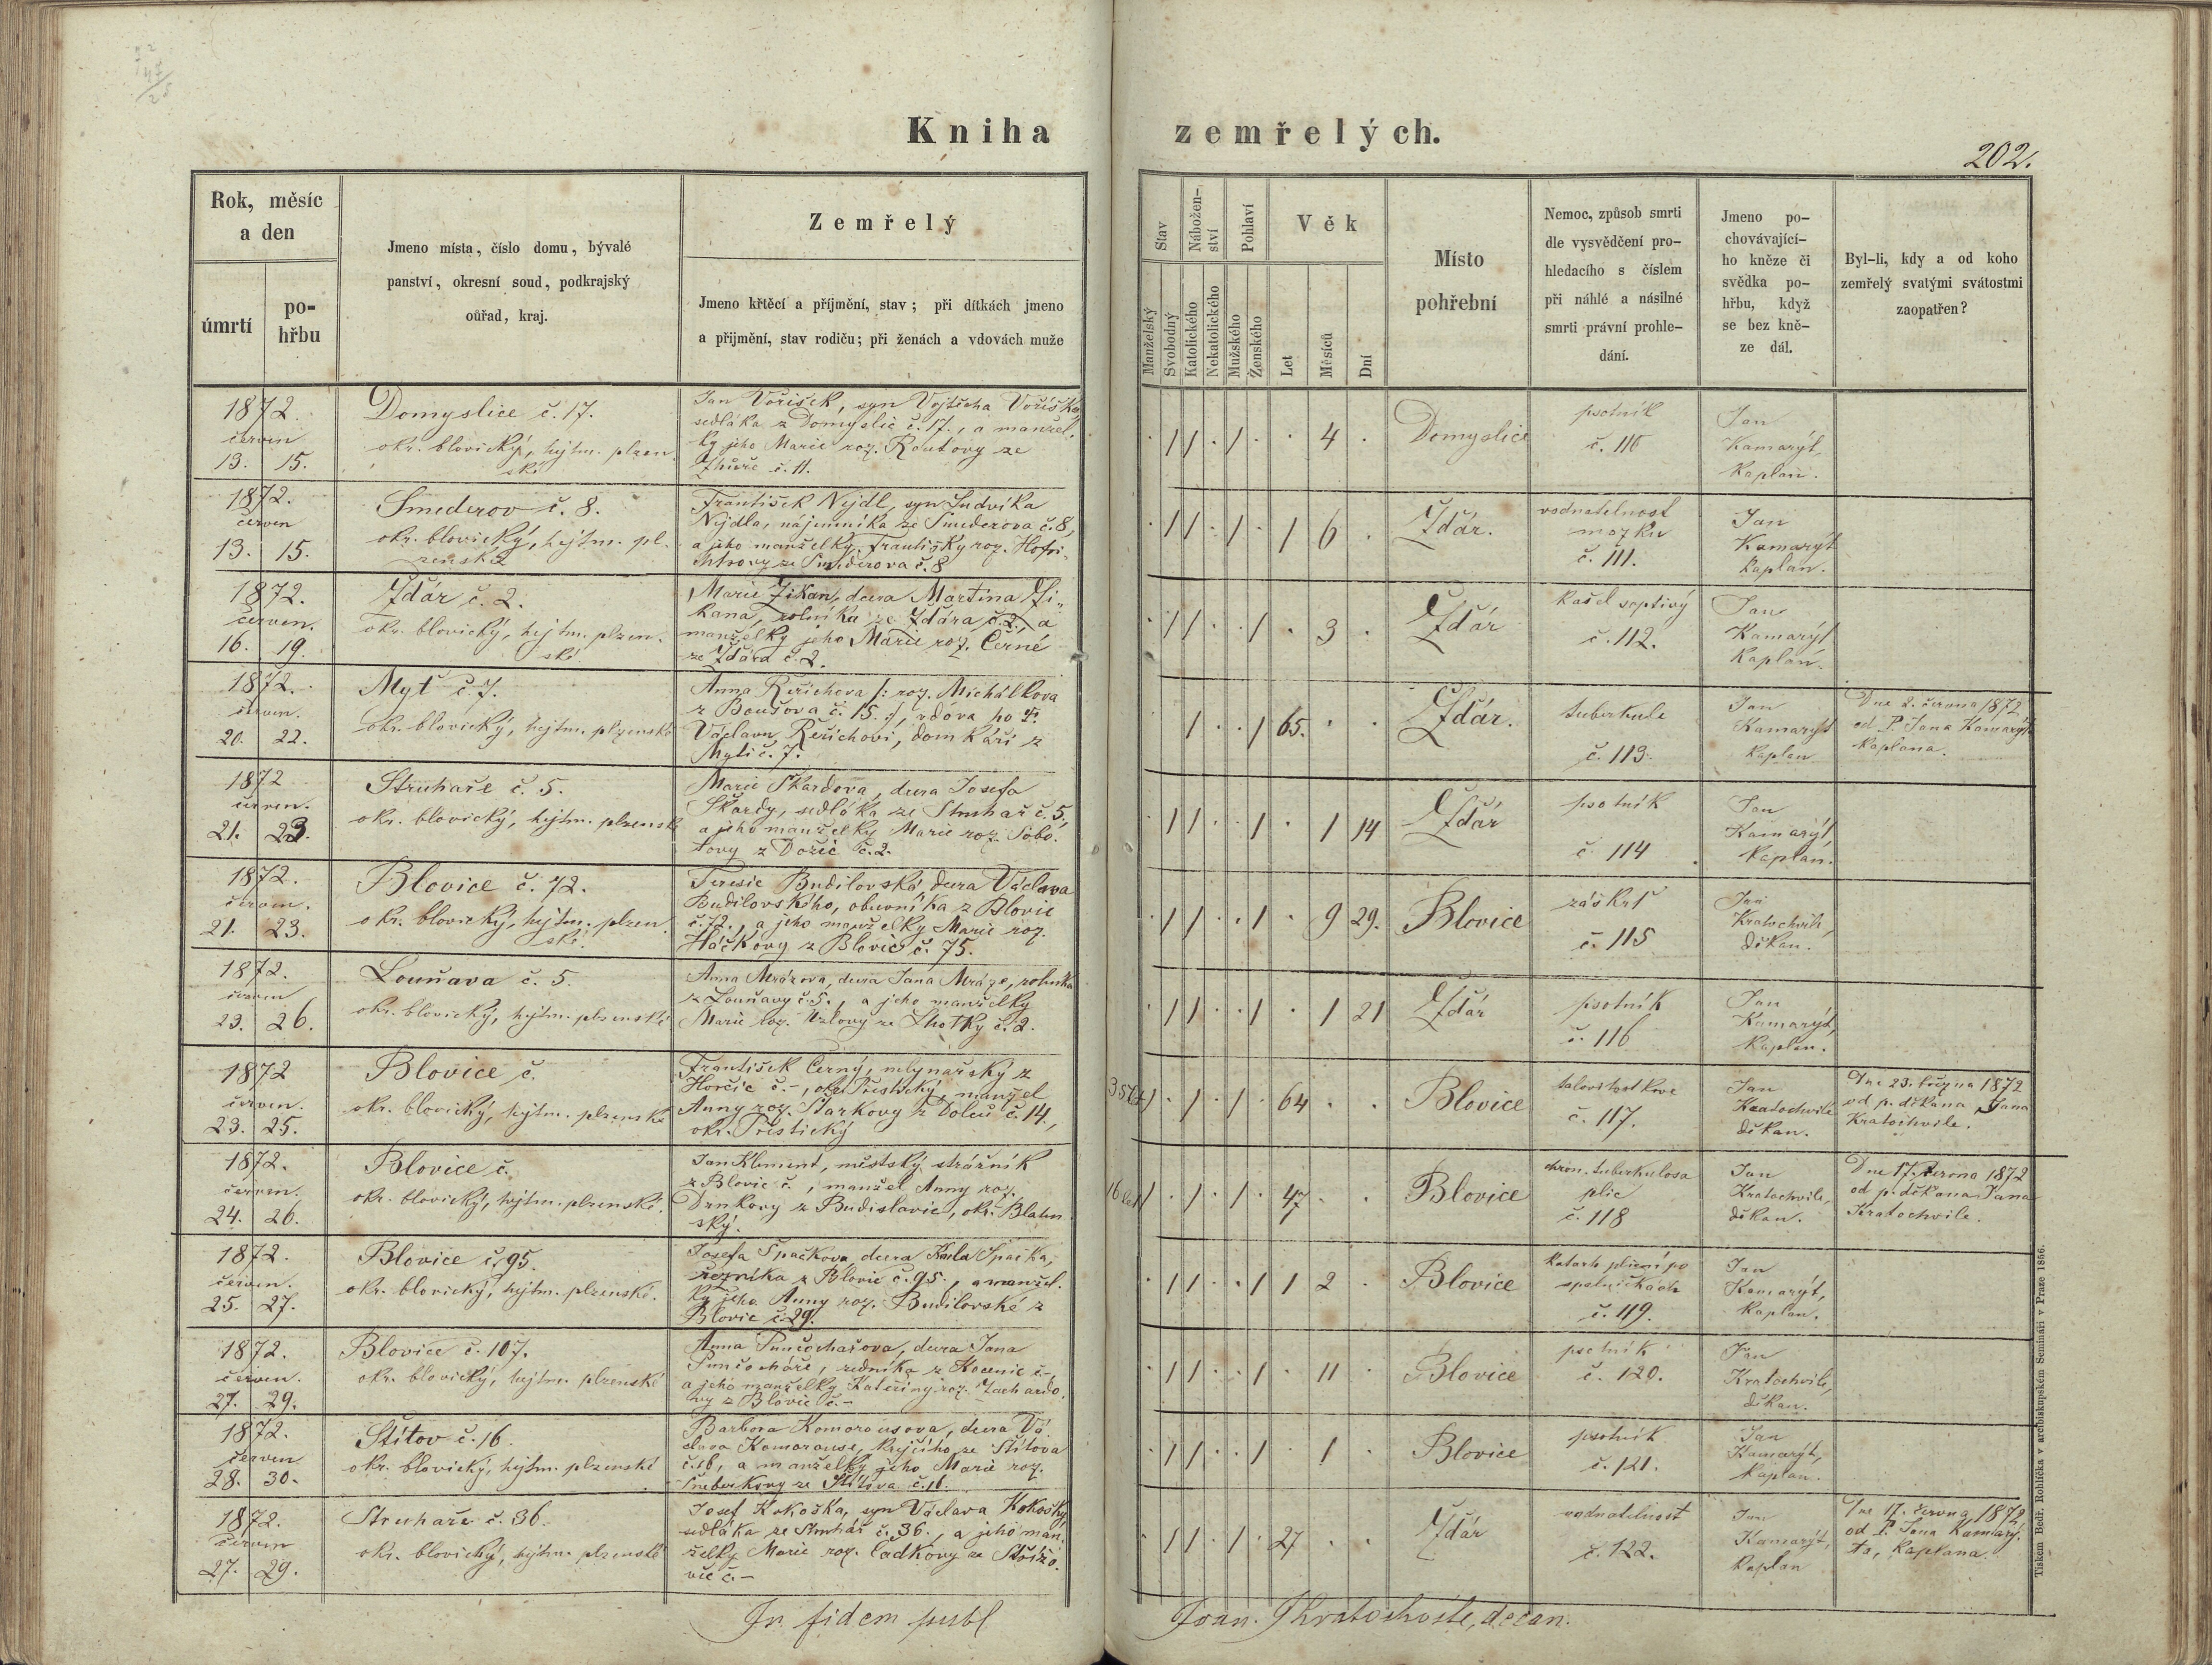 Kniha zemřelých.
202.
Rok, měsíc
a den
úmrtí
po-
hřbu
Jmeno místa, číslo domu, bývalé
panství, okresní soud, podkrajský
ouřad, kraj.
Zemřelý
Jmeno křtěcí a příjmění, stav; při dítkách jmeno
a přijmění, stav rodičů; při ženách a vdovách muže
Stav
Manželský
Svobodný
Nábožen-
ství
Katolického
Nekatolického
Pohlaví
Mužského
Ženského
Věk
Let
Měsíců
Dní
Místo
pohřební
Nemoc, způsob smrti
dle vysvědčení pro-
hledacího s číslem
při náhlé a násilné
smrti právní prohle-
dání.
Jmeno po-
chovávající-
ho kněze či
svědka po-
hřbu, když
se bez kně-
ze dál.
Byl-li, kdy a od koho
zemřelý svatými svátostmi
zaopatřen?
1872.
červen
13. 15.
Domyslice č. 17.
okr. blovický, hejtm. plzen-
ské
Jan Voříšek, syn Vojtěcha Voříška,
sedláka z Domyslic č. 17., a manžel-
ky jeho Marie roz. Routovy ze
č. 11.
4
Domyslice
psotník
č. 110
Jan
Kamarýt,
kaplan.
1872.
červen
13. 15.
Smederov č. 8.
okr. blovický, hejtm. pl-
zenské
František Nejdl, syn Ludvíka
Nejdla, nájemníka ze Smederova č. 8,
a jeho manželky Františky roz. Hofri-
chtrovy ze Smederova č. 8
1 6
Ždár.
vodnatelnost
mozku
č. 111.
Jan
Kamarýt
kaplan.
1872.
červen.
16. 19.
Ždár č. 2.
okr. blovický, hejtm. plzen-
ské
Marie Zikan, dcera Martina Zi-
kana, rolníka ze Ždára č. 2., a
manželky jeho Marie roz. Černé
ze Ždára č. 2.
3
Ždár
kašel
č. 112.
Jan
Kamarýt
kaplan.
1872.
červen.
20. 22.
Myť č 7.
okr. blovický, hejtm. plzenské
Anna Řeřichova /: roz. Michálkova
z Boušova č. 15. :/, vdova po
Václavu Řeřichovi, domkáři z
Myti č. 7.
65.
Ždár.
tuberkule
č. 113.
Jan
Kamarýt
kaplan
Dne 2. června 1872
od P. Jana Kamarýta
kaplana.
1872
červen.
21. 23.
Struhaře č. 5.
okr. blovický, hejtm. plzenské
Marie Škardova, dcera Josefa
Škardy, sedláka ze Struhař č. 5.,
a jeho manželky Marie roz. Sobo-
tovy z č. 2.
1 14
Ždár
psotník
č. 114
Jan
Kamarýt,
kaplan.
1872.
červen.
21. 23.
Blovice č. 72.
okr. blovický, hejtm. plzen-
ské.
Teresie Budilovská, dcera Václava
Budilovského, obuvníka z Blovic
č. 72., a jeho manželky Marie roz.
Háčkovy z Blovic č. 75.
9 29.
Blovice
záškrt
č. 115
Jan
Kratochvile,
děkan.
1872.
červen
23. 26.
Louňava č. 5.
okr. blovický, hejtm. plzenské
Anna Mrázova, dcera Jana Mráze, rolníka
z Louňavy č. 5., a jeho manželky
Marie roz. Uzlovy ze Lhotky č. 2.
1 21
Ždár
psotník
č. 116
Jan
Kamarýt,
kaplan.
1872
červen.
23. 25.
Blovice č.
okr. blovický, hejtm. plzenské
František Černý, mlynařský z
Horčic č. –, okr. Přestický, manžel
Anny roz. Starkovy z Dolců č. 14.,
okr. Přestický
35 let
64
Blovice
č. 117.
Jan
Kratochvile
děkan.
Dne 23. března 1872
od p. děkana Jana
Kratochvile.
1872.
červen.
24. 26.
Blovice č.
okr. blovický, hejtm. plzenské.
Jan Klement, městský strážník
z Blovic č. , manžel Anny roz.
Drnkovy z Budislavic, okr. Blaten-
ský.
16 let
47
Blovice
chron. tuberkulosa
plic
č. 118
Jan
Kratochvile,
děkan.
Dne 17. června 1872
od p. děkana Jana
Kratochvile.
1872.
červen.
25. 27.
Blovice č. 95.
okr. blovický, hejtm. plzenské.
Josefa Špačkova, dcera Karla Špačka,
řezníka z Blovic č. 95., a manžel-
ky jeho Anny roz. Budilovské z
Blovic č. 29.
1 2
Blovice
Katarh plicní po
spalničkách
č. 119.
Jan
Kamarýt,
kaplan.
1872.
červen.
27. 29.
Blovice č. 107.
okr. blovický, hejtm. plzenské
Anna Punčochařova, dcera Jana
Punčocháře, zedníka z Kocenic č. –,
a jeho manželky Kateřiny roz. Zachardo-
vy z Blovic č. –
11
Blovice
psotník
č. 120.
Jan
Kratochvile,
děkan.
1872.
červen
28. 30.
Štítov č. 16.
okr. blovický, hejtm. plzenské
Barbora Komorousova, dcera Vá-
clava Komorouse, krejčího ze Štítova
č. 16, a manželky jeho Marie roz.
Šneberkovy ze Štítova č. 16.
1
Blovice
psotník
č. 121.
Jan
Kamarýt,
kaplan.
1872.
červen
27. 29.
Struhaře č. 36.
okr. blovický, hejtm. plzenské
Josef Kokoška, syn Václava Kokošky,
sedláka ze Struhař č. 36., a jeho man-
želky Marie roz. Čadkovy ze Střížo-
vic č. –
27
Ždár
vodnatelnost
č. 122.
Jan
Kamarýt,
kaplan
Dne 17. června 1872
od P. Jana Kamarý-
ta, kaplana.
In fidem publ
Joan. Kratochvile, decan.
Tiskem Bedř. Rohlíčka v arcibiskupském Semináři v Praze 1856.